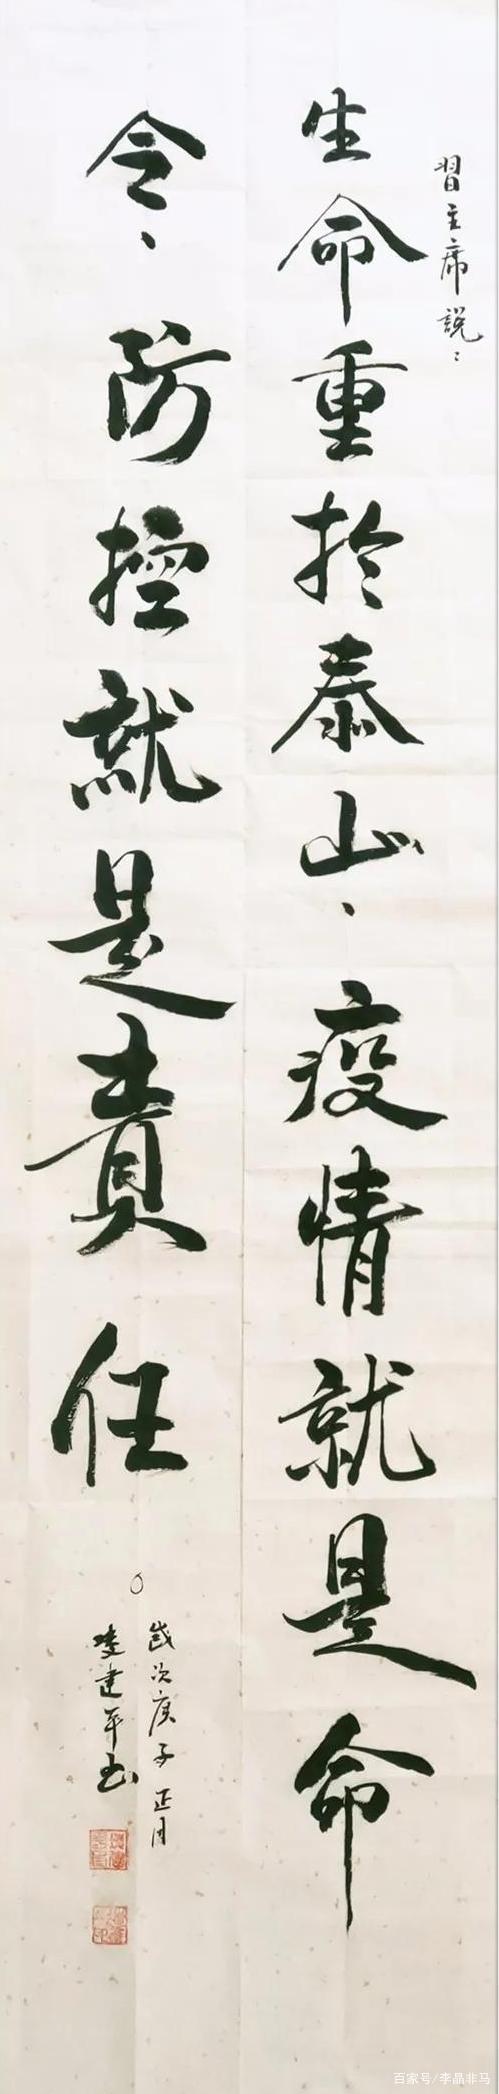 習主席說：
生命重於泰山、疫情就是命
令、防控就是責任。
歲次庚子正月
建平书
百家号/李晶非马